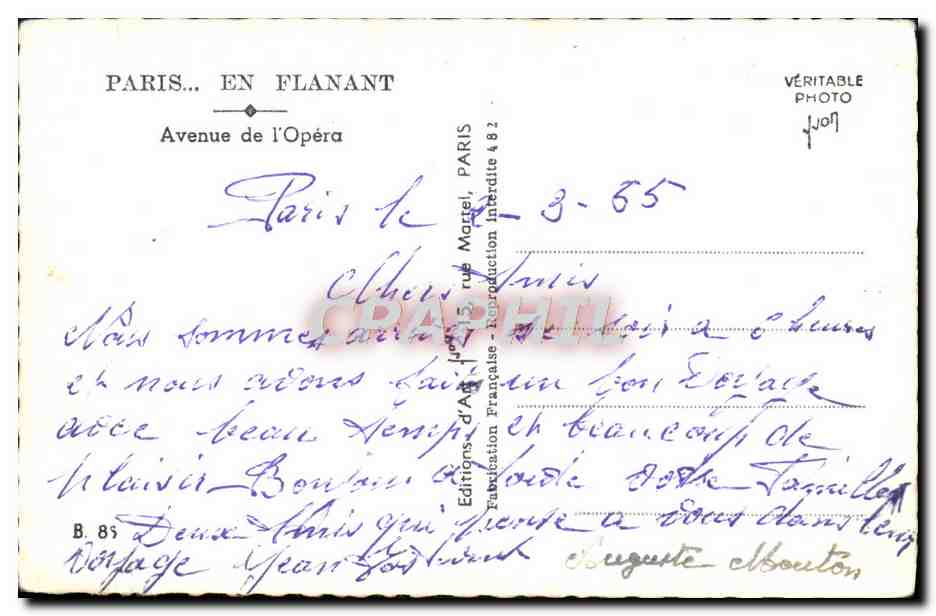 PARIS... EN FLANANT
Avenue de l'Opéra
VÉRITABLE
PHOTO
yvon
Editions d'Art yvon 15, rue Martel, PARIS
Fabrication Française - Reproduction Interdite 482
CPARAMA
Paris le - 3 - 65
Chers Amis
Nous sommes arrivés ce soir a heures
et nous avons fait un bon Voyage
avec beau temps et beaucoup de
plaisir Bonjour a toute votre Famille
B. 85
Deux Amis qui pense a vous dans leur
Voyage Jean
Auguste Mouton